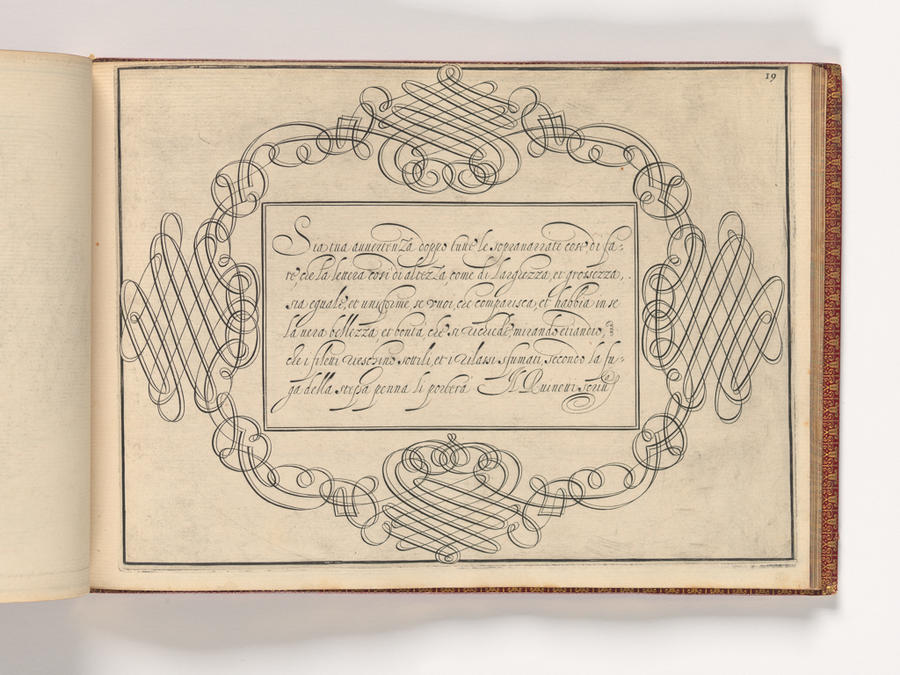 19
Sia tua auuertenza doppo tutte le sopranarrate cose, di fa-
re, che la lettera cosi di altezza, come di largezza, et grossezza,
sia eguale, et uniforme, se vuoi, che comparisca, et habbia in se
la uera bellezza, et bontà, che si richiede, mirando etiandio,
che i filetti sottili, et i rilassi sfumati secondo la fu-
ga della stessa penna li porterà Il scriu